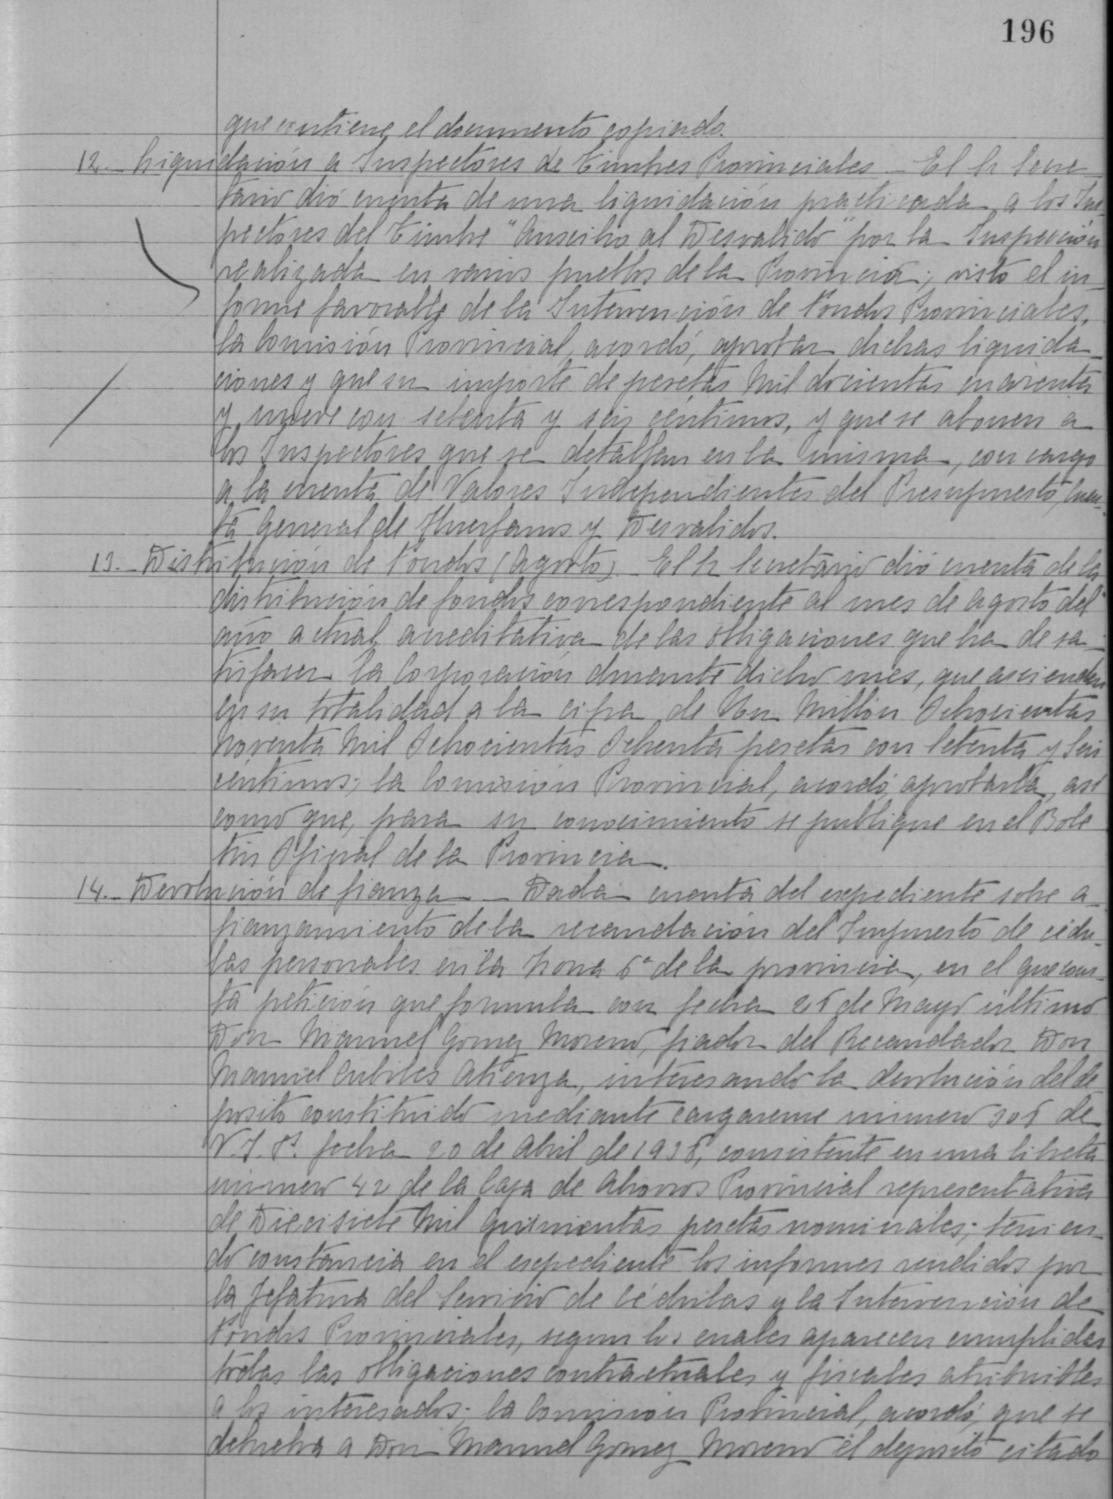 196
que contiene el documento copiado.
12.- Liquidación a Inspectores de Timbres Provinciales - El Sr Secre-
tario dió cuenta de una liquidación practicada a los Ins-
pectores del Timbre "Auxilio al Desvalido" por la Inspección
realizada en varios pueblos de la Provincia; visto el in-
forme favorable de la Intervención de Fondos Provinciales,
la Comisión Provincial, acordó, aprobar dichas liquida-
ciones y que su importe de pesetas Mil doscientas cuarenta
y nueve con setenta y seis céntimos, y que se abonen a
los Inspectores que se detallan en la misma, con cargo
a la cuenta de Valores Independientes del Presupuesto, Cuen-
ta General de Huerfanos y Desvalidos.
13.- Distribución de Fondos (Agosto) - El Sr Secretario dió cuenta de la
distribución de fondos correspondiente al mes de agosto del
año actual, acreditativa de las obligaciones que ha de sa-
tisfacer la Corporación durante dicho mes, que ascienden
en su totalidad a la cifra de Un Millón Ochocientas
Noventa Mil Ochocientas Ochenta pesetas con Setenta y Seis
céntimos; la Comisión Provincial, acordó, aprobarla, así
como que, para su conocimiento se publique en el Bole
tin Oficial de la Provincia.
14.- Devolución de fianza - Dada cuenta del expediente sobre a-
fianzamiento de la recaudación del Impuesto de cédu-
las personales en la Zona 6ª de la provincia, en el que cons-
ta petición que formula con fecha 26 de Mayo último
Don Manuel Gomez Moreno, fiador del Recaudador Don
Manuel Cubiles Atienza, interesando la devolución del de
posito constituido mediante cargareme número 306 de
fecha 20 de Abril de 1936, consistente en una libreta
número 42 de la Caja de Ahorros Provincial representativa
de Diecisiete Mil quinientas pesetas nominales; tenien-
do constancia en el expediente los informes rendidos por
la Jefatura del Servicio de Cédulas y la Intervención de
Fondos Provinciales, segun los cuales aparecen cumplidas
todas las obligaciones contractuales y fiscales atribuibles
a los interesados; la Comisión Provincial, acordó, que se
devuelva a Don Manuel Gomez Moreno el deposito citado